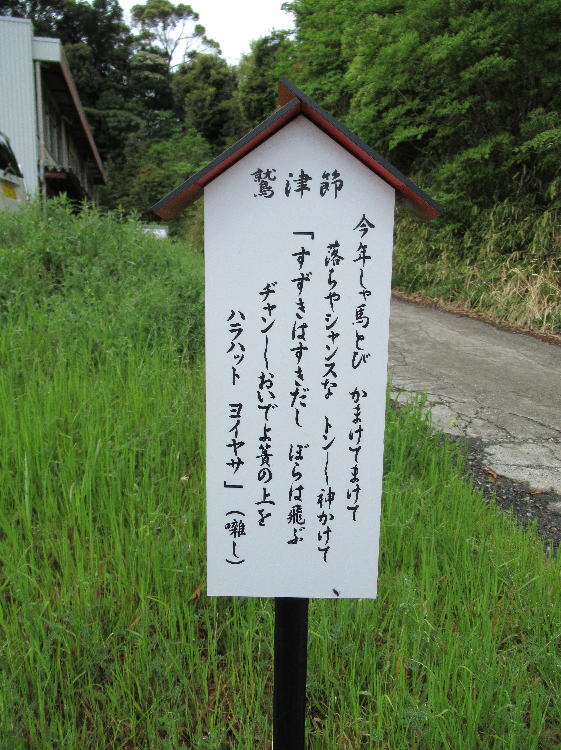 鷲津節
今年しゃ馬とび　かまけてまけて
落ちやシャンスな　トン〳〵神かけて
「すずきはすきだし　ぼらは飛ぶ
ヂャン〳〵おいでよ簀の上を
ハラハット　ヨイヤサ」（囃し）